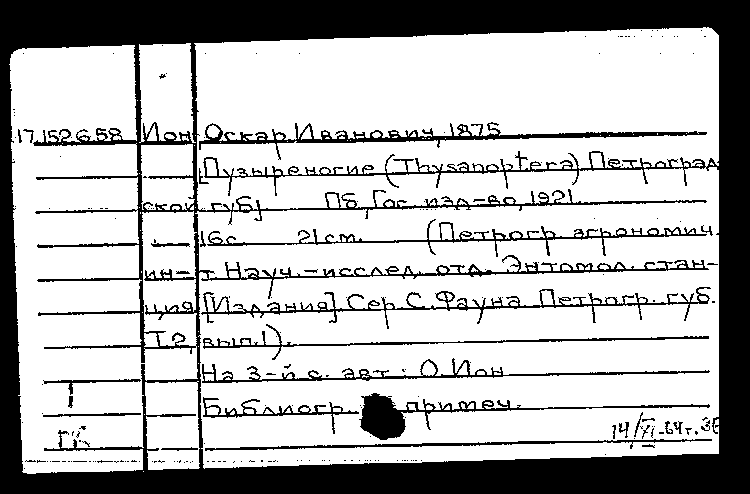 17.152.6.58 Ион, Оскар Иванович, 1875
[Пузыреногие (Thysanoptera) Петроград
ской губ] Пб, Гос. изд-во, 1921.
16с. 21см. (Петрогр. агрономич.
ин-т. Науч.-исслед. отд. Энтомол. стан-
ция. [Издания]. Сер. С. Фауна Петрогр. губ.
Т.2, вып.1).
На 3-й с. авт.: О. Ион
Библиогр. примеч.
1
ГК 14/XI-64г.